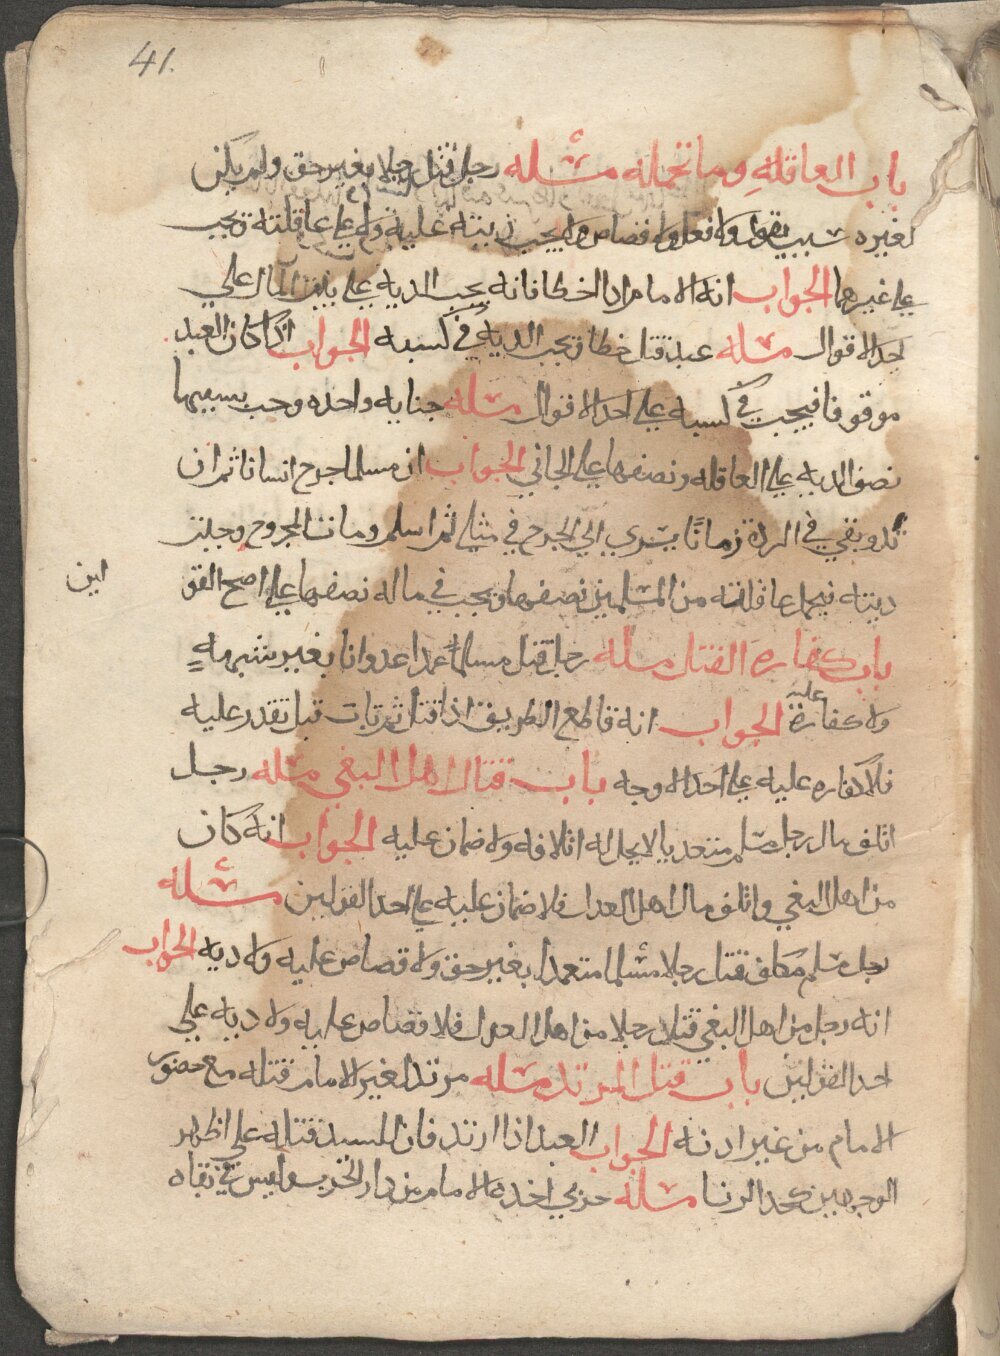 41.
باب العاقلة وما تحمله مسئله رجل قتل رجلا بغير حق ولم يكن
لغيره سبب بقول ولا فعل ولا قصاص ولا يجب ديته عليه ولا على عاقلته وتجب
على غيرهما الجواب انه الامام اذا اخطا فانه يجب الديه على بيت المال على
احد الاقوال مسله عبد قتل خطا وتجب الديه في كسبه الجواب اذا كان العبد
موقوفا فيجب في كسبه على احد الاقوال مسله جنايه واحده وجب بسببها
نصف الديه على العاقله ونصفها على الجاني الجواب ان مسلما جرح انسانا ثم ارتد
وبقي في الردة زمانا يسري الى الجرح في مثله ثم اسلم ومات المجروح وجبت
ديته فيحمل عاقلته من المسلمين نصفها ويجب في ماله نصفها على اصح القو
لين
باب كفارة القتل مسله رجل قتل مسلما عمدا عدوانا بغير شبهة
ولا كفارة عليه الجواب انه قاطع الطريق اذا قتل ثم تاب قبل تقدر عليه
فلا كفاره عليه على احد الاوجه باب قتال اهل البغي مسله رجل
اتلف مال رجل مسلم متعديا لا يحل له اتلافه ولا ضمان عليه الجواب انه كان
من اهل البغي واتلف مال اهل العدل فلا ضمان عليه على احد القولين مسئله
رجل مسلم مكلف قتل رجلا مسلما متعمدا بغير حق ولا قصاص عليه ولا ديه الجواب
انه رجل من اهل البغي قتل رجلا من اهل العدل فلا قصاص عليه ولا ديه على
احد القولين باب قتل المرتد مسله مرتد لغير الامام قتله مع حضور
الامام من غير اذنه الجواب العبد اذا ارتد فان للسيد قتله على اظهر
الوجهين كحد الزنا مسله حربي اخذه الامام من دار الحرب وليس في بقاه